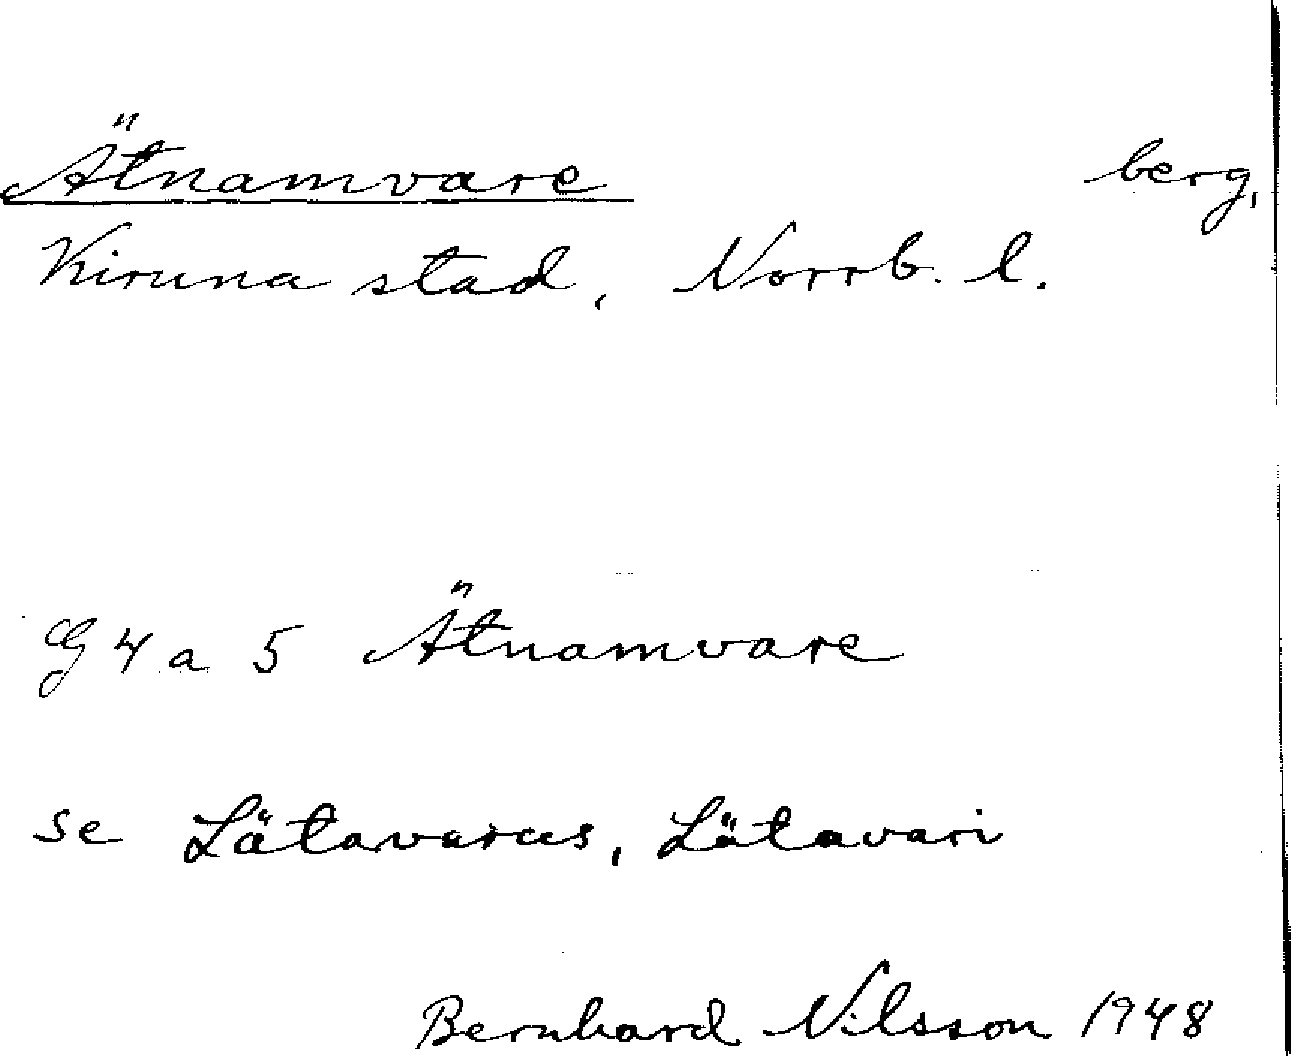 Ätnamvare berg,
Kiruna stad, Norrb. l.
G 4 a 5 Ätnamvare
se Lätavaras, Lätavari
Bernhard Nilsson 1948